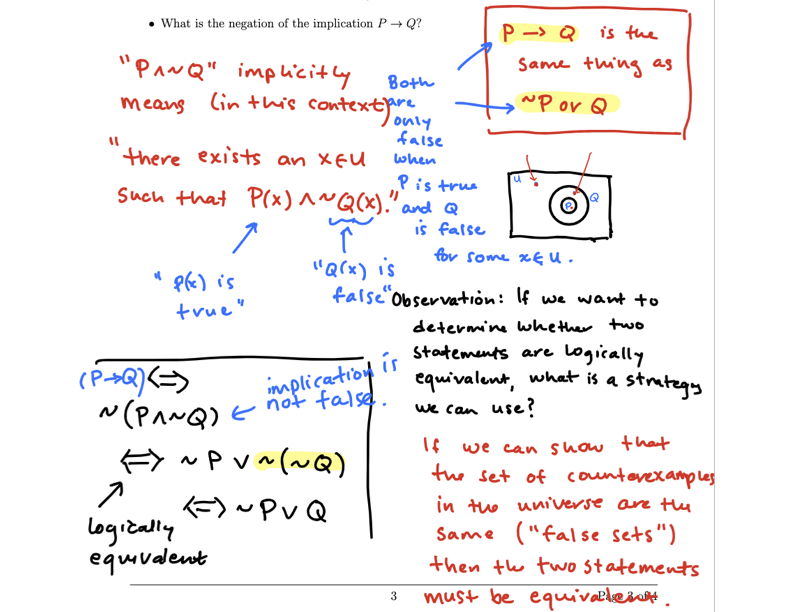 • What is the negation of the implication P → Q?
"P∧~Q" implicitly
means (in this context)
"there exists an x∈U
such that P(x) ∧ ~Q(x)."
"P(x) is
true"
"Q(x) is
false"
Both
are
only
false
when
P is true
and Q
is false
for some x∈U.
P → Q is the
same thing as
~P or Q
U
P
Q
(P→Q) ⟺
~(P∧~Q)
implication is
not false.
⟺ ~P ∨ ~(~Q)
⟺ ~P∨Q
logically
equivalent
Observation: If we want to
determine whether two
statements are logically
equivalent, what is a strategy
we can use?
If we can show that
the set of counterexamples
in the universe are the
same ("false sets")
then the two statements
must be equivalent.
3
Page 3 of 4